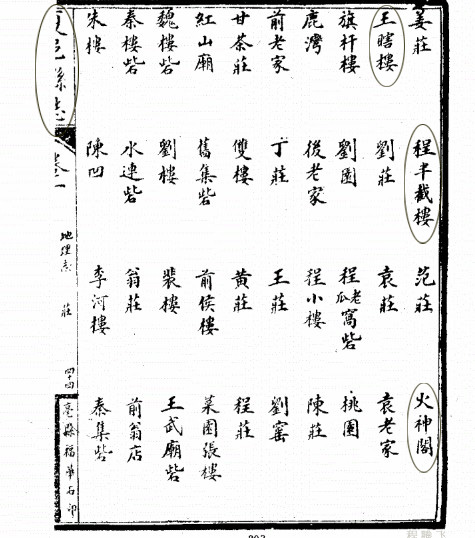 姜莊 程半截樓 范莊 火神閣
王瞎樓 劉莊 袁莊 袁老家
旗杆樓 劉園 程老瓜窩砦 桃園
鹿灣 後老家 程小樓 陳莊
前老家 丁莊 王莊 劉窰
甘茶莊 雙樓 黃莊 程莊
紅山廟 舊集砦 前侯樓 菜園張樓
魏樓砦 劉樓 裴樓 王武廟砦
秦樓砦 水連砦 翁莊 前翁店
朱樓 陳凹 李河樓 秦集砦
夏邑縣志 卷一 地理志 莊 亳縣福華石印